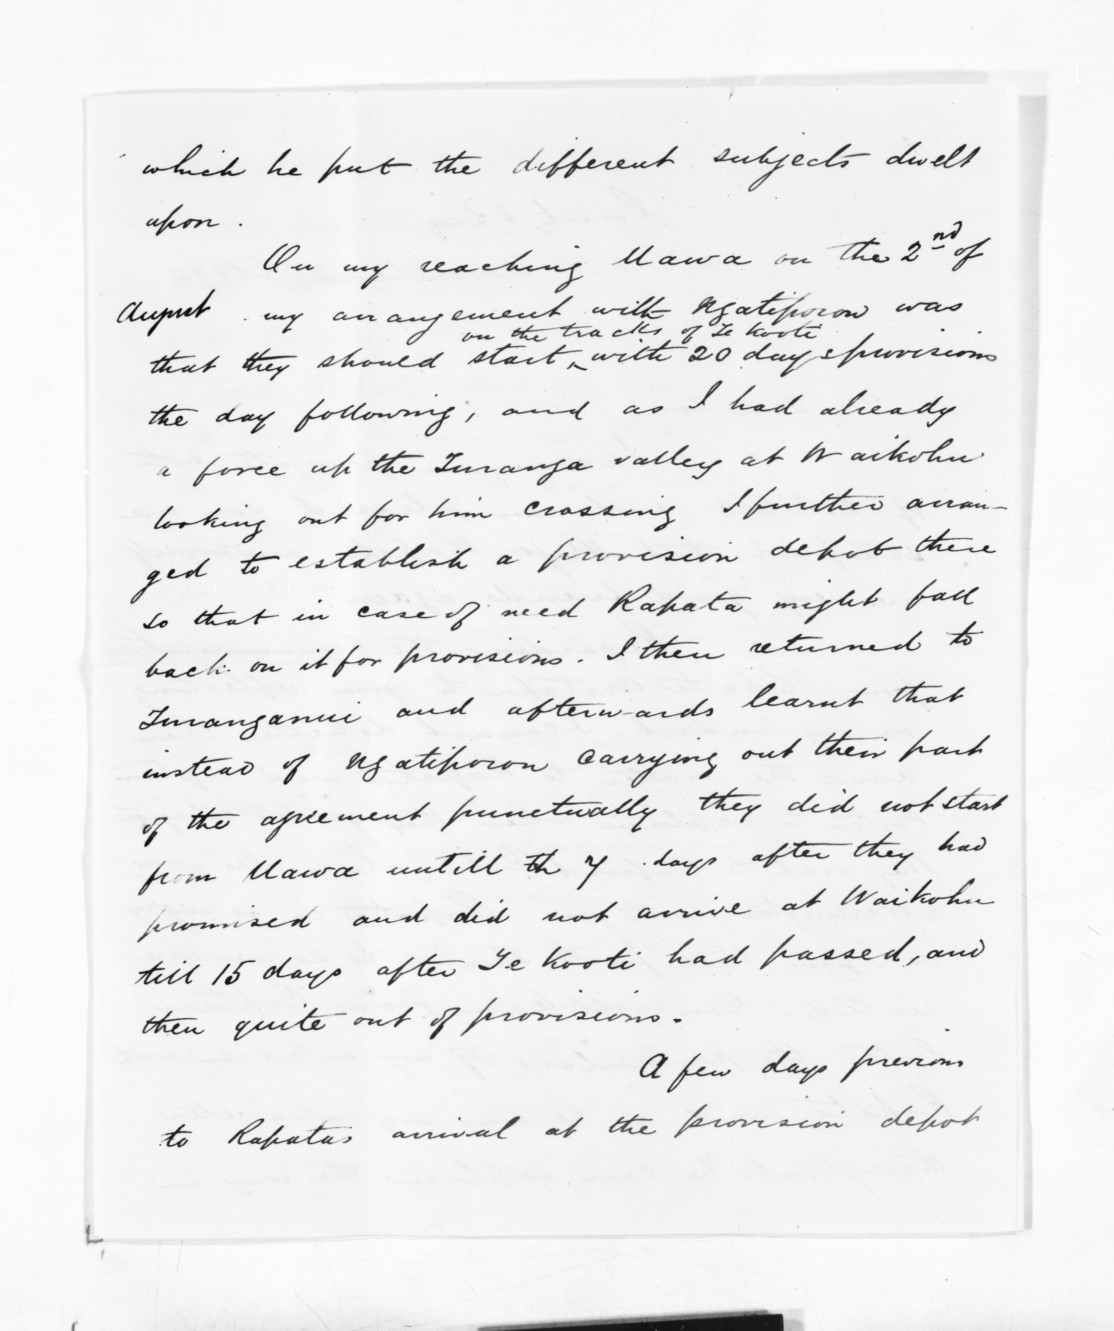 which he put the different subjects dwelt
upon.
On my reaching Uawa on the 2nd of
August my arrangement with Ngatiporou was
on the tracks of Te Kooti
that they should start ^ with 20 days provisions
the day following, and as I had already
a force up the Turanga valley at Waikohu
looking out for him crossing I further arran-
ged to establish a provision depot there
so that in case of need Rapata might fall
back on it for provisions. I then returned to
Turanganui and afterwards learnt that
instead of Ngatiporou carrying out their part
of the agreement punctually they did not start
from Uawa untill th 7 days after they had
promised and did not arrive at Waikohu
till 15 days after Te Kooti had passed, and
then quite out of provisions.
A few days previous
to Rapatas arrival at the provision depot